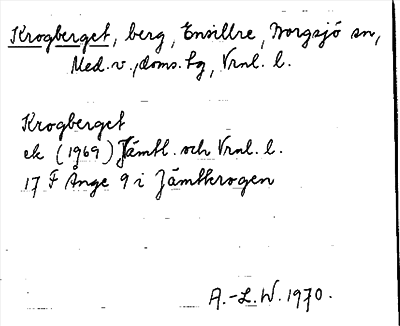 Krogberget, berg, Ensillre, Borgsjö sn,
Med. v., doms. hg, Vrnl. l.
Krogberget
ek (1969) Jämtl. och Vrnl. l.
17 F Ånge 9 i Jämtkrogen
A.-L.W. 1970.